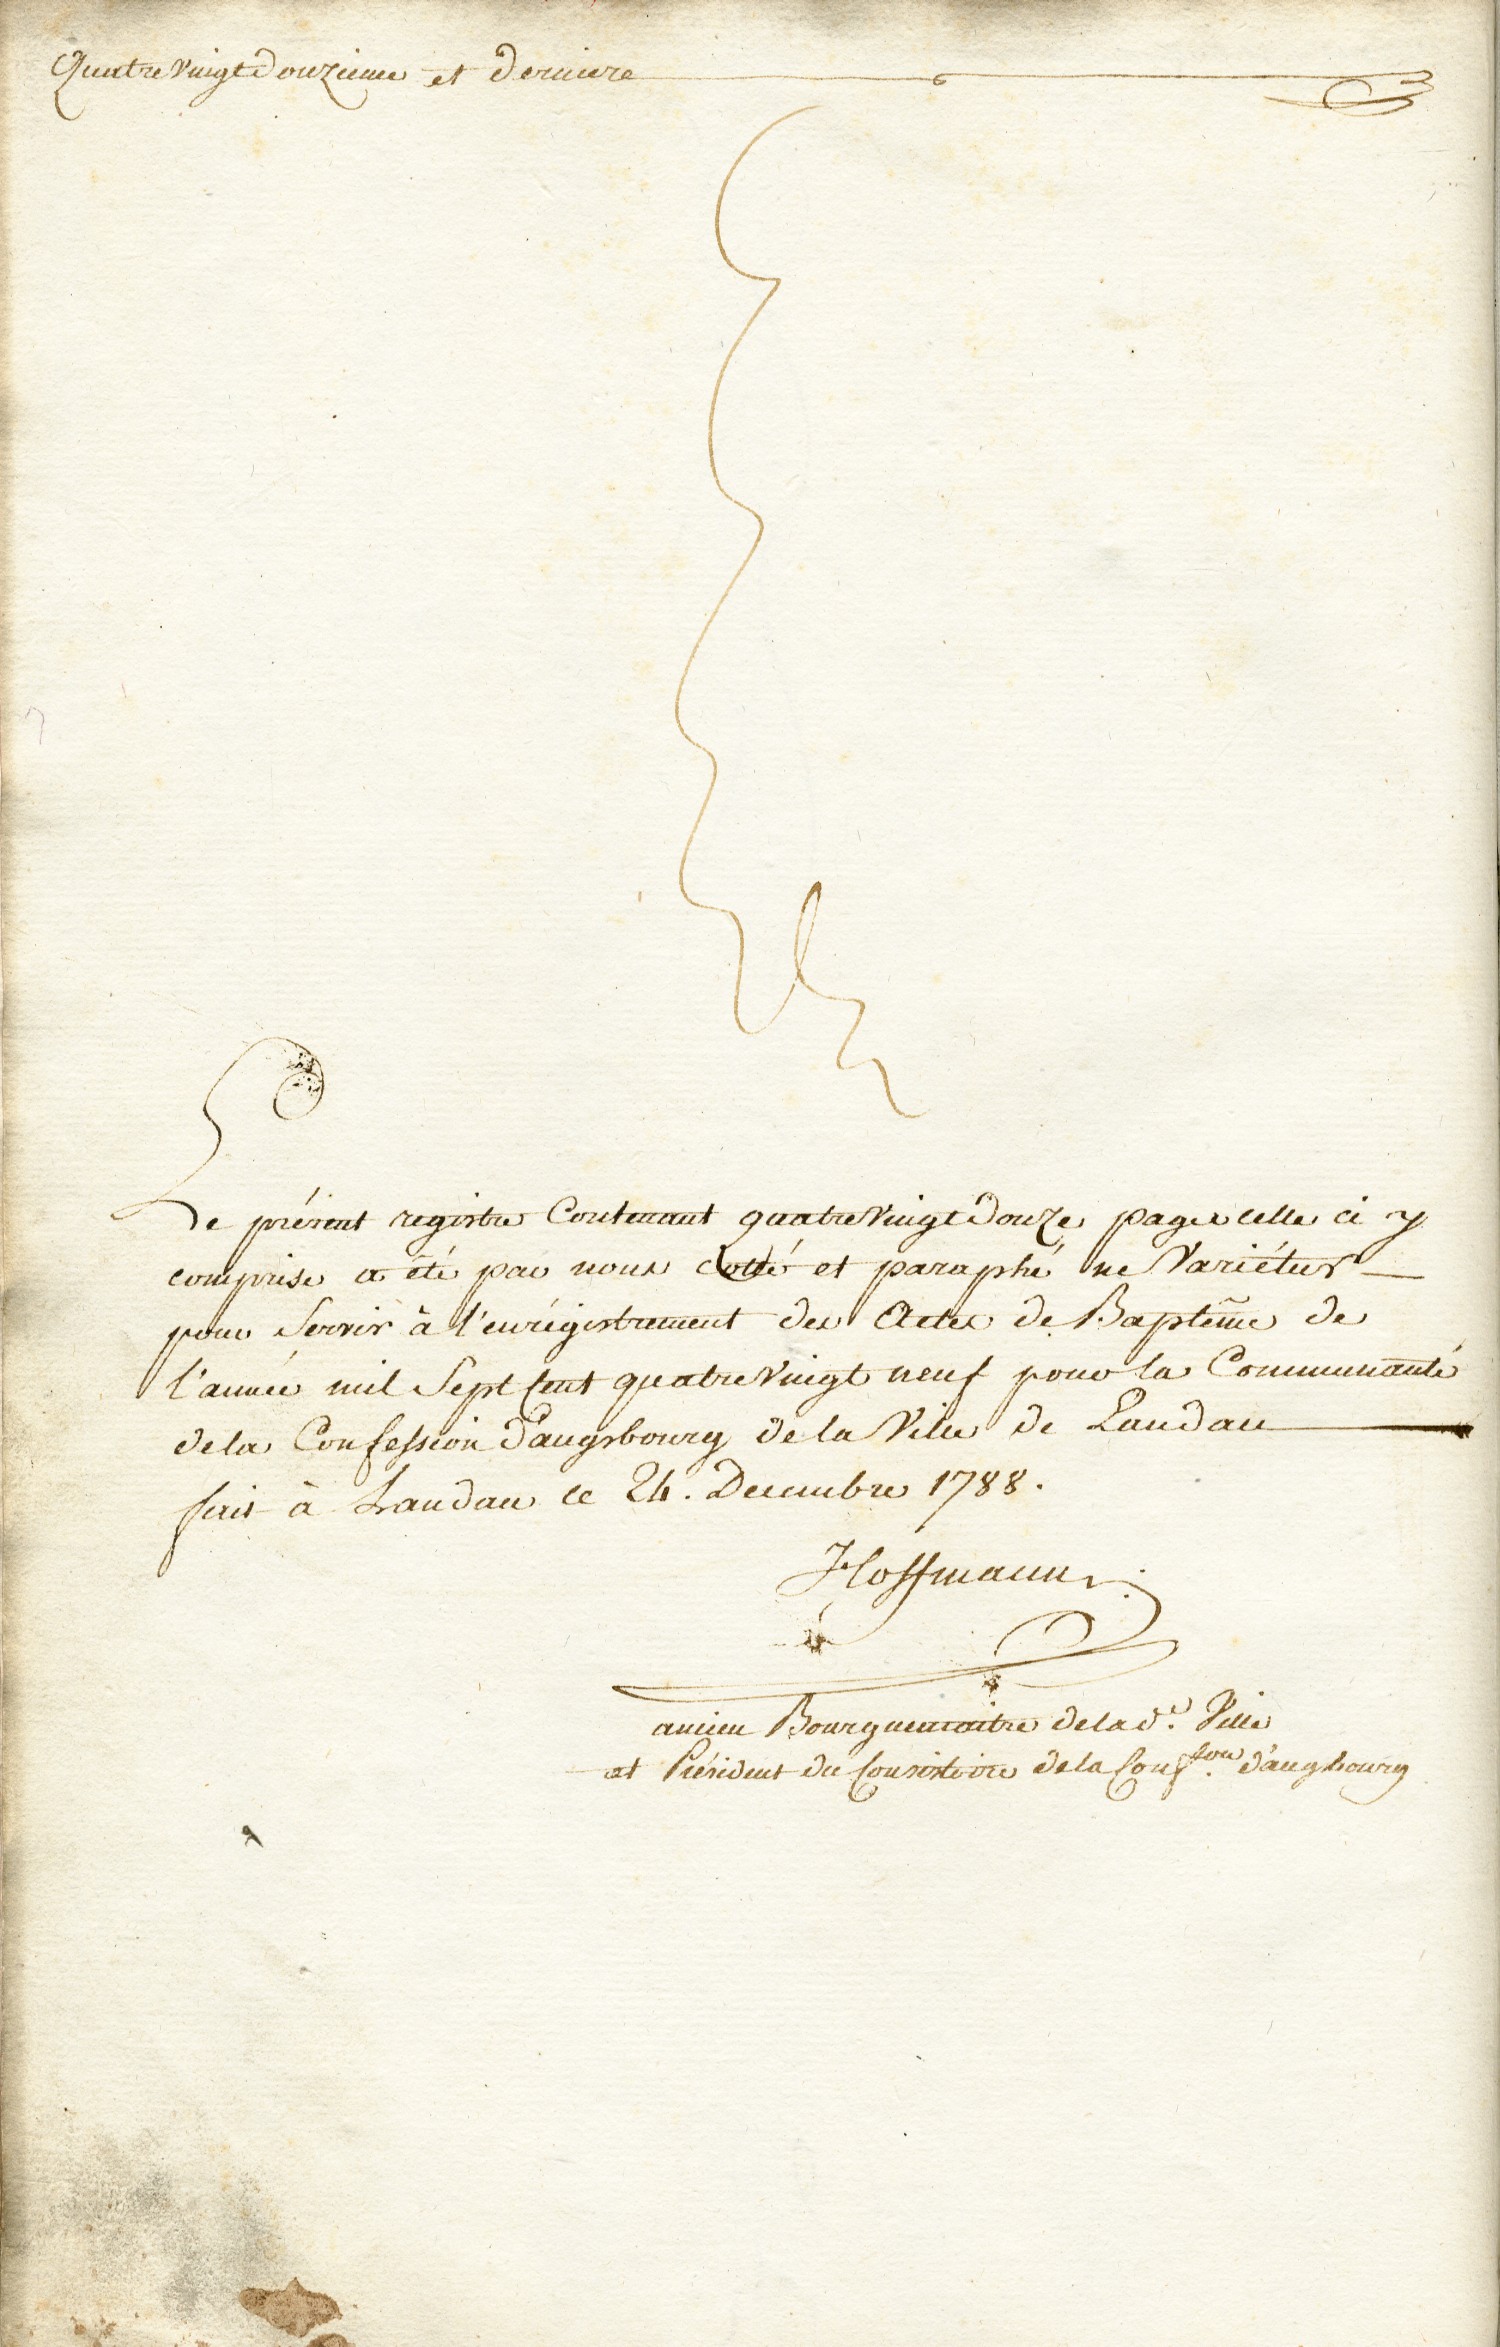 Quatre Vingt Douzieme et Derniere
Le présent registre Contenant quatre Vingt Douze pages celle ci y
comprise a été par nous cotté et paraphé ne Variétur
pour Servir à l'enrégistrement des Actes de Baptême de
l'année mil Sept Cent quatre Vingt neuf pour la Communauté
de la Confession d'augsbourg de la Ville de Landau
fait à Landau le 24. Decembre 1788.
Hoffmann
ancien Bourguemaitre de la de. Ville
et Président du Consistoire de la Conf.sion d'augbourg